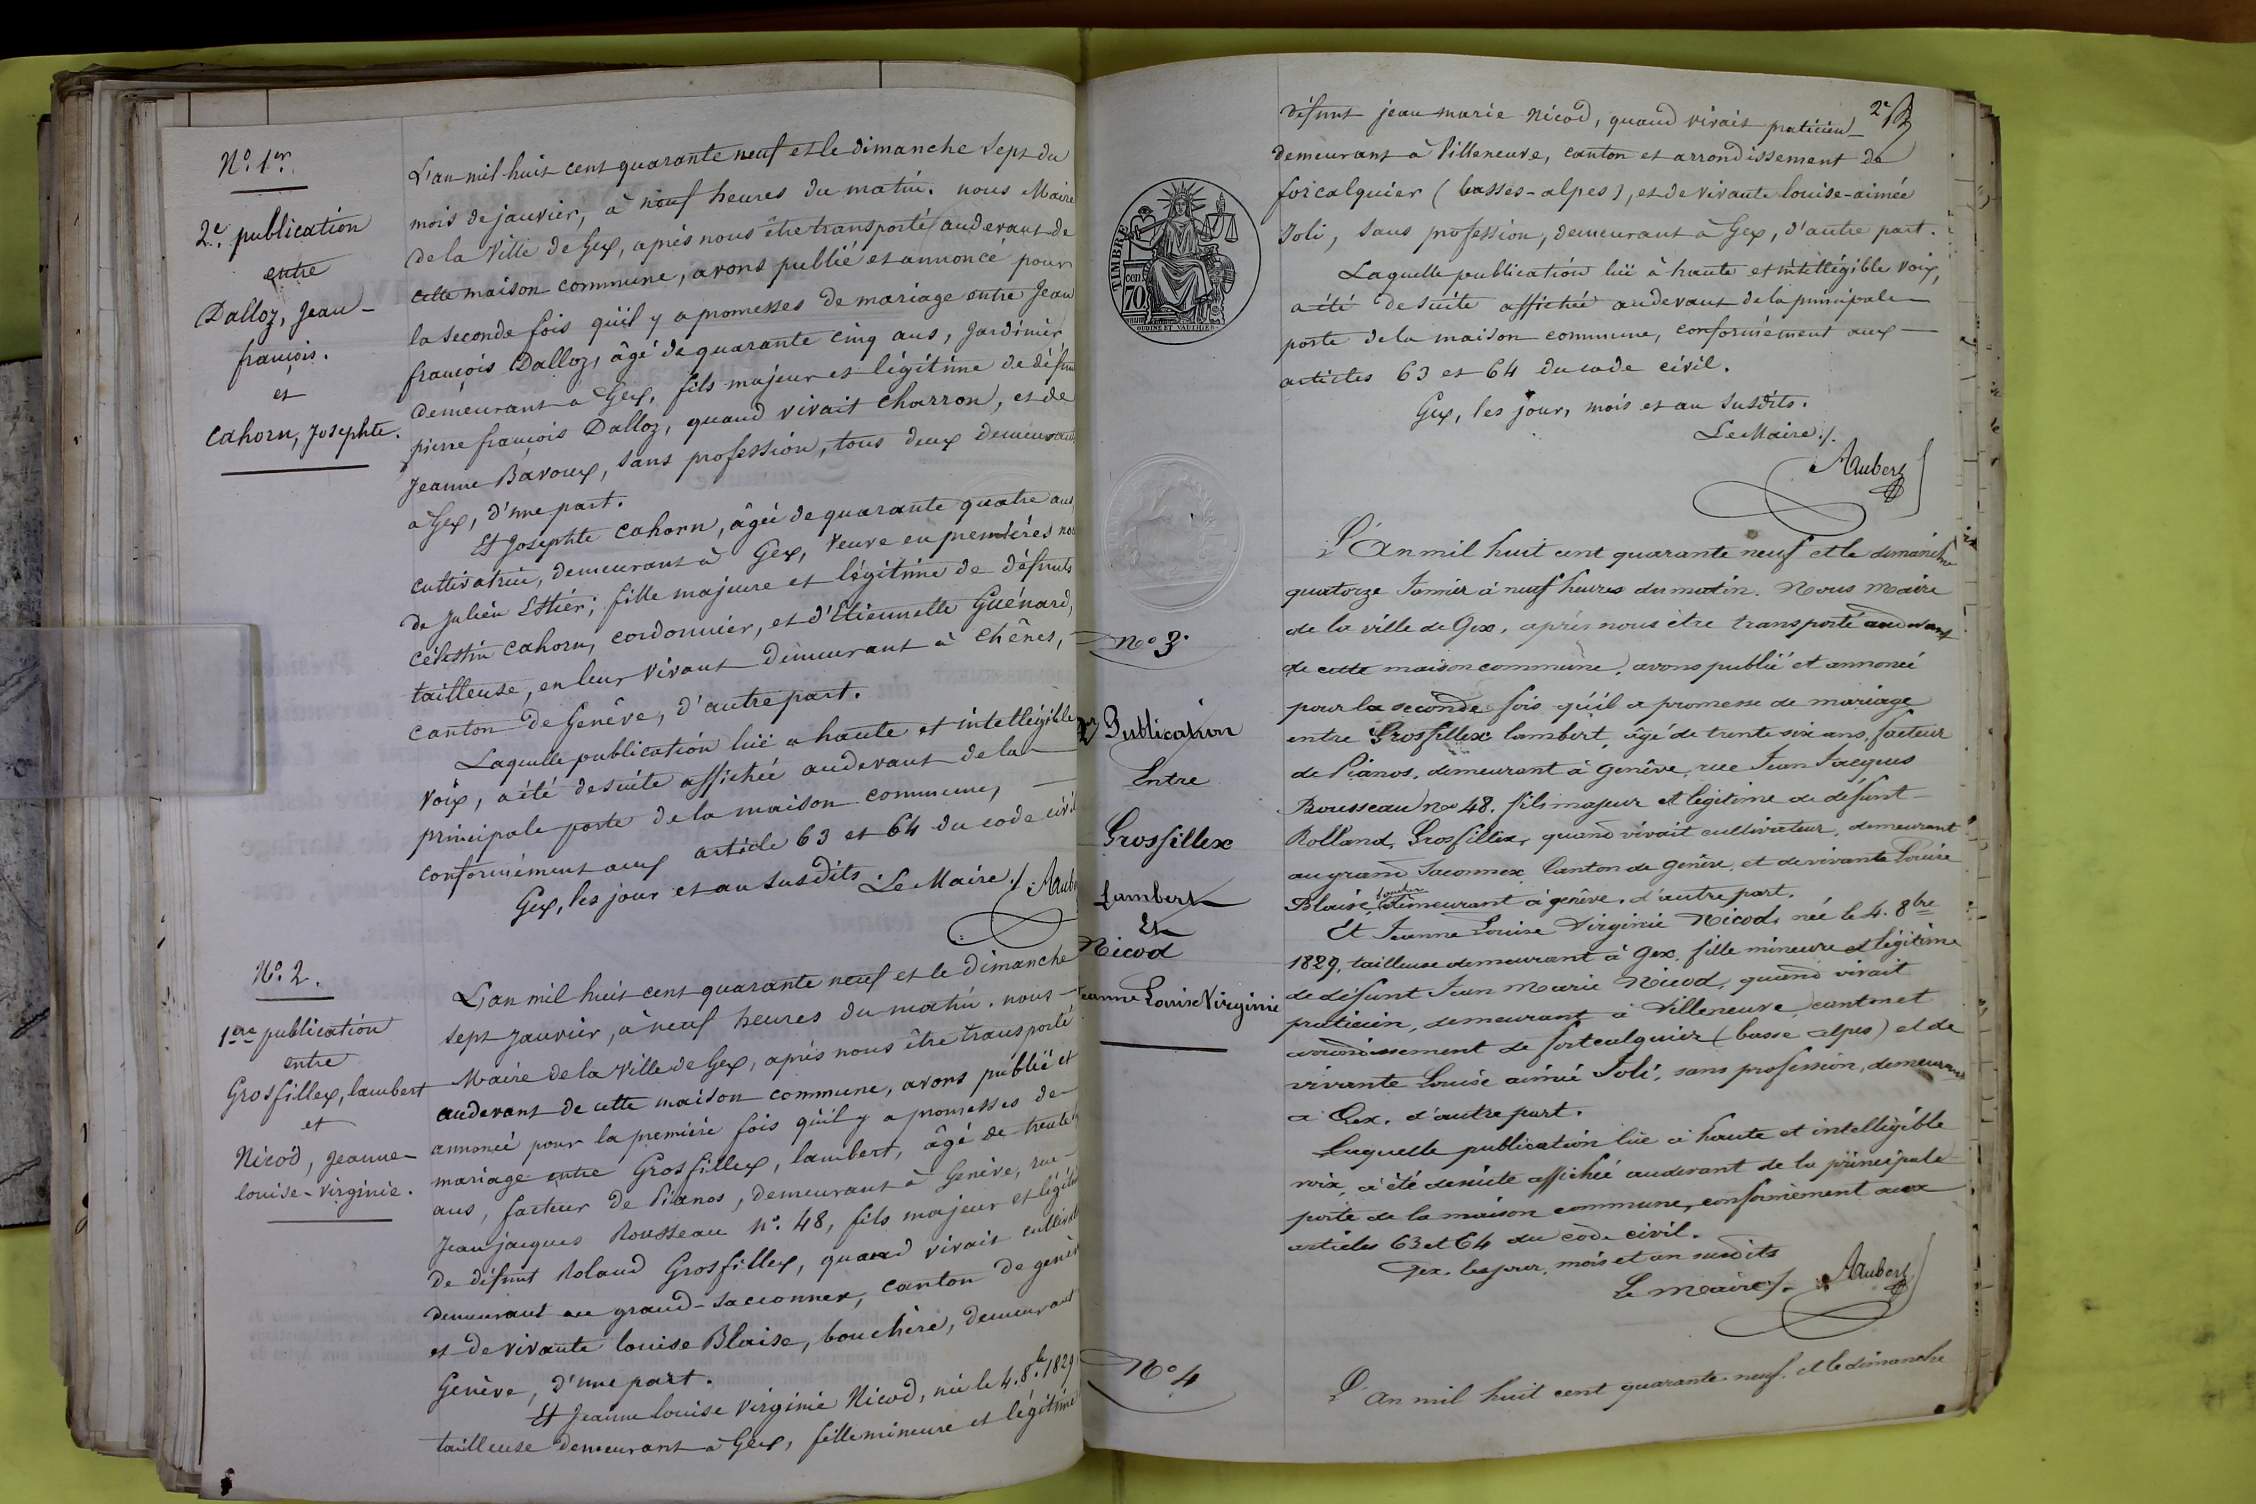 N.º 1er.
2e. publication
entre
Dalloz, Jean-
françois.
et
Cahorn, Josephte.
L'an mil huit cent quarante neuf et le dimanche sept du
mois de janvier, à neuf heures du matin. nous Maire
de la Ville de Gex, après nous être transporté audevant de
cette maison commune, avons publié et annoncé pour
la seconde fois qu'il y a promesses de mariage entre Jean
françois Dalloz, âgé de quarante cinq ans, Jardinier,
demeurant à Gex, fils majeur et légitime de défunt
pierre françois Dalloz, quand vivait Charron, et de
Jeanne Bavoux, sans profession, tous deux demeurant
à Gex, d'une part.
Et Josephte Cahorn, âgée de quarante quatre ans,
cultivatrice, demeurant à Gex, veuve en premières
de Julien Esthier; fille majeure et légitime de défunts
célestin Cahorn, cordonnier, et d'Etiennette Guénard,
tailleuse, en leur vivant demeurant à Chênes,
canton de Genève, d'autre part.
Laquelle publication lüe a haute et intelligible
voix, a été desuite affichée audevant de la
principale porte de la maison commune,
conformément aux article 63 et 64 du code civil
Gex, les jour et an susdits. Le Maire./. Aub
N.º 2.
1ère publication
entre
Grosfillex, lambert
et
Nicod, Jeanne-
louise-virginie.
L'an mil huit cent quarante neuf et le Dimanche
sept Janvier, à neuf heures du matin. nous
Maire de la ville de Gex, après nous être transporté
audevant de cette maison commune, avons publié et
annoncé pour la première fois qu'il y a promesses de
mariage entre Grosfillex, lambert, âgé de trente
ans, facteur de Pianos, demeurant à Genève, rue
Jean jacques Rousseau n.º 48, fils majeur et légitime
de défunt Roland Grosfillex, quand vivait
demeurant au grand-saconnex, canton de genève
et de vivante louise Blaise, bouchère, demeurant
Genève, d'une part.
Et Jeanne louise virginie Nicod, née le 4. 8.bre 1829
tailleuse demeurant à Gex, fille mineure et légitime
2e
défunt jean marie Nicod, quand vivait praticien
demeurant à Villeneuve, canton et arrondissement de
forcalquier (basses-alpes), et de vivante louise-aimée
Joli, sans profession, demeurant à Gex, d'autre part.
Laquelle publication lüe à haute et intelligible voix,
a été de suite affichée audevant de la principale
porte de la maison commune, conformément aux
articles 63 et 64 du code civil.
Gex, les jour, mois et an susdits.
Le Maire./.
AAubert
TIMBRE
cen
70
OUDINE ET VAUTHIER
No 3.
Publication
Entre
Grosfillex
Lambert
Et
Nicod
Jeanne Louise Virginie
L'An mil huit cent quarante neuf et le dimanche
quatorze Janvier à neuf heures du matin. Nous Maire
de la ville de Gex, après nous être transporté audevant
de cette maison commune, avons publié et annoncé
pour la seconde fois qu'il a promesse de mariage
entre Grosfillex lambert, âgé de trente six ans, facteur
de Pianos, demeurant à Genève, rue Jean Jacques
Rousseau no 48. fils majeur et légitime de défunt
Rolland, Grosfillex, quand vivait cultivateur, demeurant
au grand Saconnex Canton de genève, et de vivante Louise
Blaise, demeurant à genève, d'autre part.
Et Jeanne Louise Virginie Nicod, née le 4. 8bre
1829, tailleuse demeurant à Gex, fille mineure et légitime
de défunt Jean Marie Nicod, quand vivait
praticien, demeurant à Villeneuve, canton et
arrondissement de fortcalquier (basse alpes) et de
vivante Louise aimée Joli, sans profession, demeurant
a Gex, d'autre part.
Laquelle publication lüe à haute et intelligible
voix, a été desuite affichée audevant de la principale
porte de la maison commune, conformément aux
articles 63 et 64 du code civil.
Gex, les jour, mois et an susdits
Le Maire./. AAubert
No 4
L'An mil huit cent quarante neuf, et le dimanche